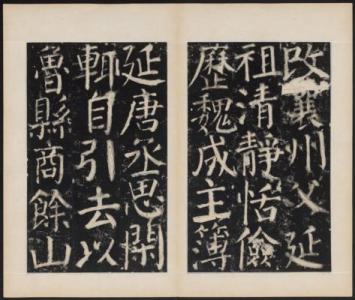 改襄州父延
祖清靜恬儉
歷魏成主簿
延唐丞思閑
輒自引去以
魯縣商餘山